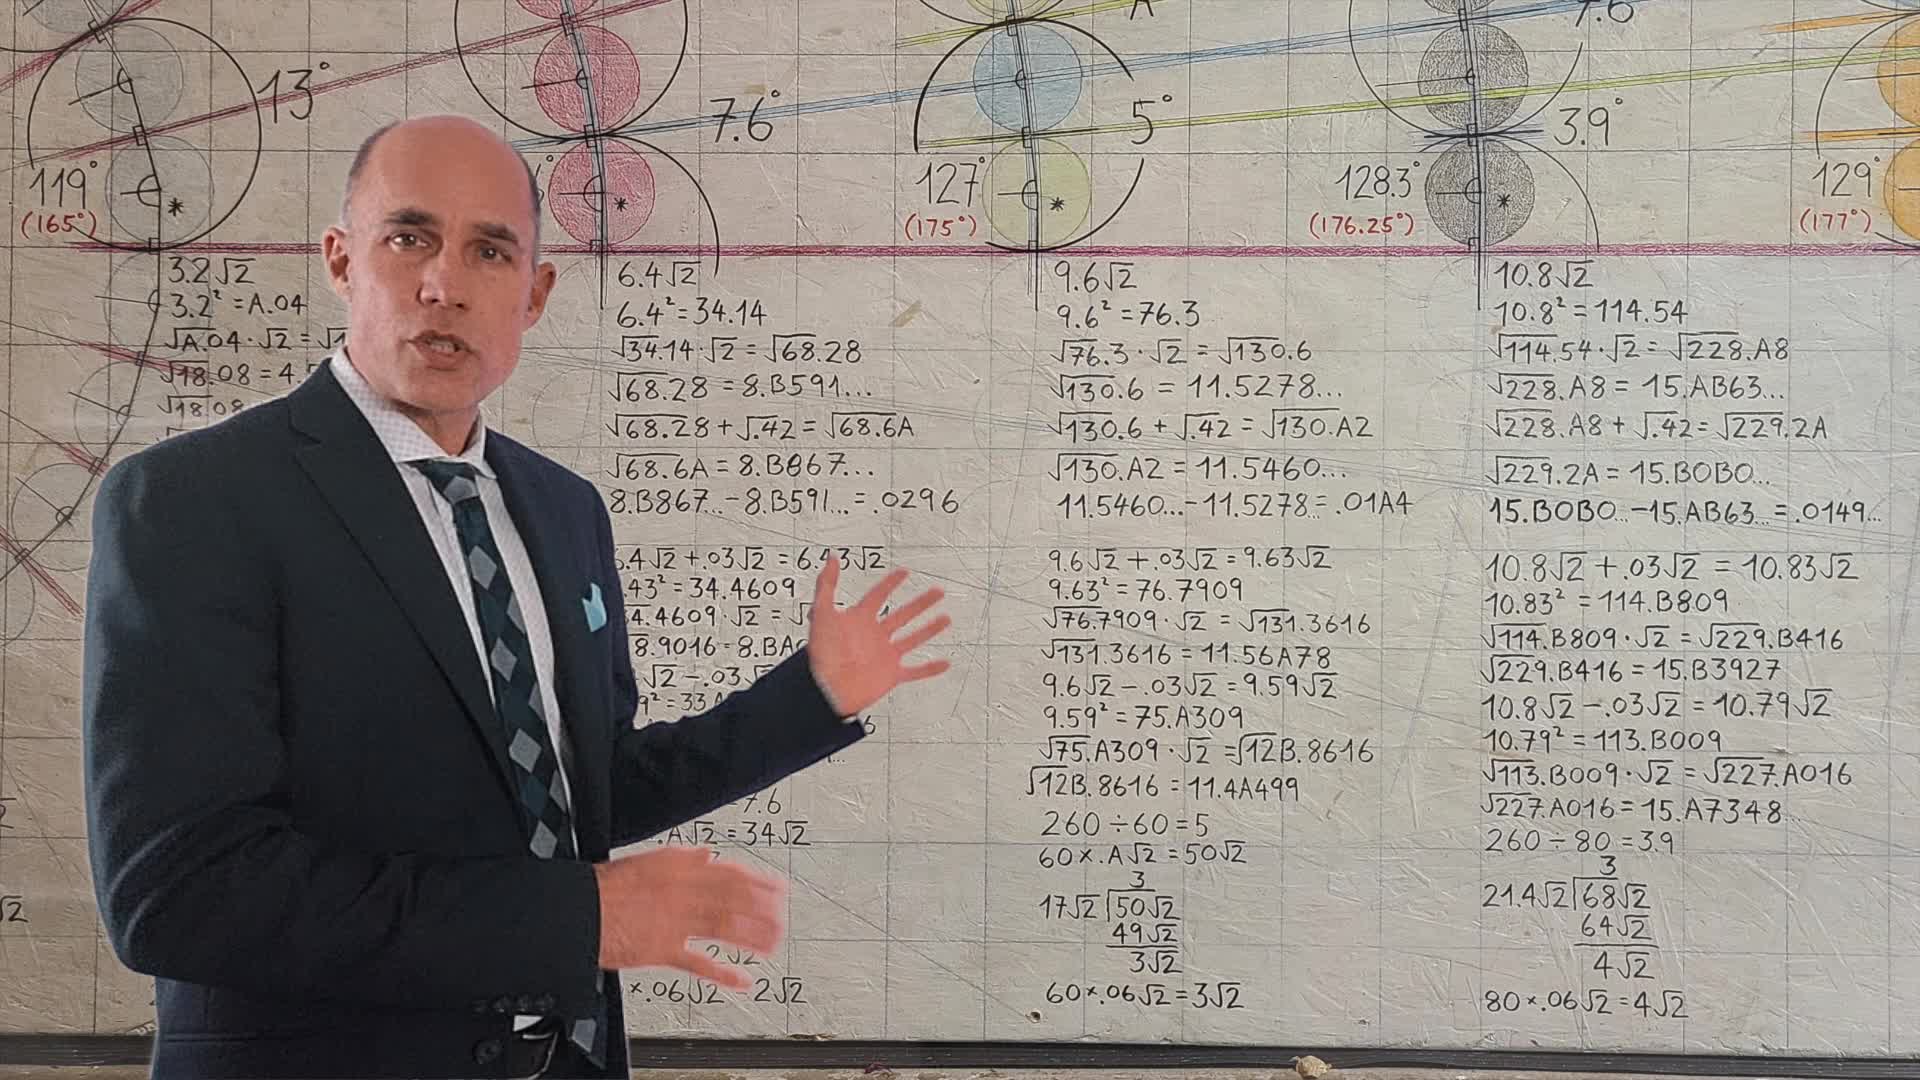 A
7.6
13°
7.6°
5°
3.9°
119°
(165°)
127°
(175°)
128.3°
(176.25°)
129°
(177°)
*
*
*
*
3.2√2
3.2² = A.04
√A.04 · √2 =
√18.08 = 4.
√18.08
6.4√2
6.4² = 34.14
√34.14 · √2 = √68.28
√68.28 = 8.B591...
√68.28 + √.42 = √68.6A
√68.6A = 8.B867...
8.B867... - 8.B591... = .0296
6.4√2 + .03√2 = 6.43√2
.43² = 34.4609
4.4609 · √2 = √
8.9016 = 8.BA
√2 - .03√
9² = 33.
= 7.6
.A√2 = 34√2
2√2
×.06√2 = 2√2
9.6√2
9.6² = 76.3
√76.3 · √2 = √130.6
√130.6 = 11.5278...
√130.6 + √.42 = √130.A2
√130.A2 = 11.5460...
11.5460... - 11.5278... = .01A4
9.6√2 + .03√2 = 9.63√2
9.63² = 76.7909
√76.7909 · √2 = √131.3616
√131.3616 = 11.56A78
9.6√2 - .03√2 = 9.59√2
9.59² = 75.A309
√75.A309 · √2 = √12B.8616
√12B.8616 = 11.4A499
260 ÷ 60 = 5
60 × .A√2 = 50√2
3
17√2 ⟌50√2
49√2
3√2
60 × .06√2 = 3√2
10.8√2
10.8² = 114.54
√114.54 · √2 = √228.A8
√228.A8 = 15.AB63...
√228.A8 + √.42 = √229.2A
√229.2A = 15.B0B0...
15.B0B0... - 15.AB63... = .0149...
10.8√2 + .03√2 = 10.83√2
10.83² = 114.B809
√114.B809 · √2 = √229.B416
√229.B416 = 15.B3927
10.8√2 - .03√2 = 10.79√2
10.79² = 113.B009
√113.B009 · √2 = √227.A016
√227.A016 = 15.A7348...
260 ÷ 80 = 3.9
3
21.4√2 ⟌68√2
64√2
4√2
80 × .06√2 = 4√2